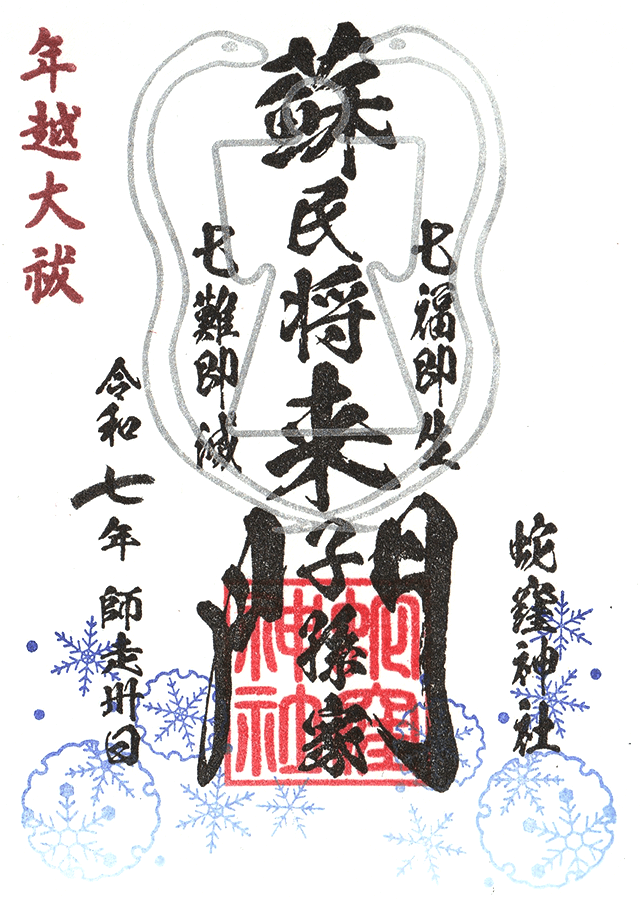 蛇窪神社
七福即生
蘇民将来子孫家門
蛇窪神社
七難即滅
令和七年 師走卅日
年越大祓